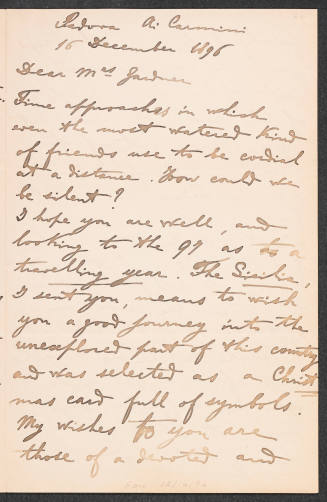 Padova Ai Carmini
16 December 1896
Dear Mrs Gardner
Time approaches in which
even the most watered kind
of friends use to be cordial
at a distance. How could we
be silent?
I hope you are well, and
looking to the 97 as to a
travelling year. The Sicilia,
I sent you, means to wish
you a good journey into the
unexplored part of this country
and was selected as a Christ
mas card full of symbols.
My wishes to you are
those of a devoted and